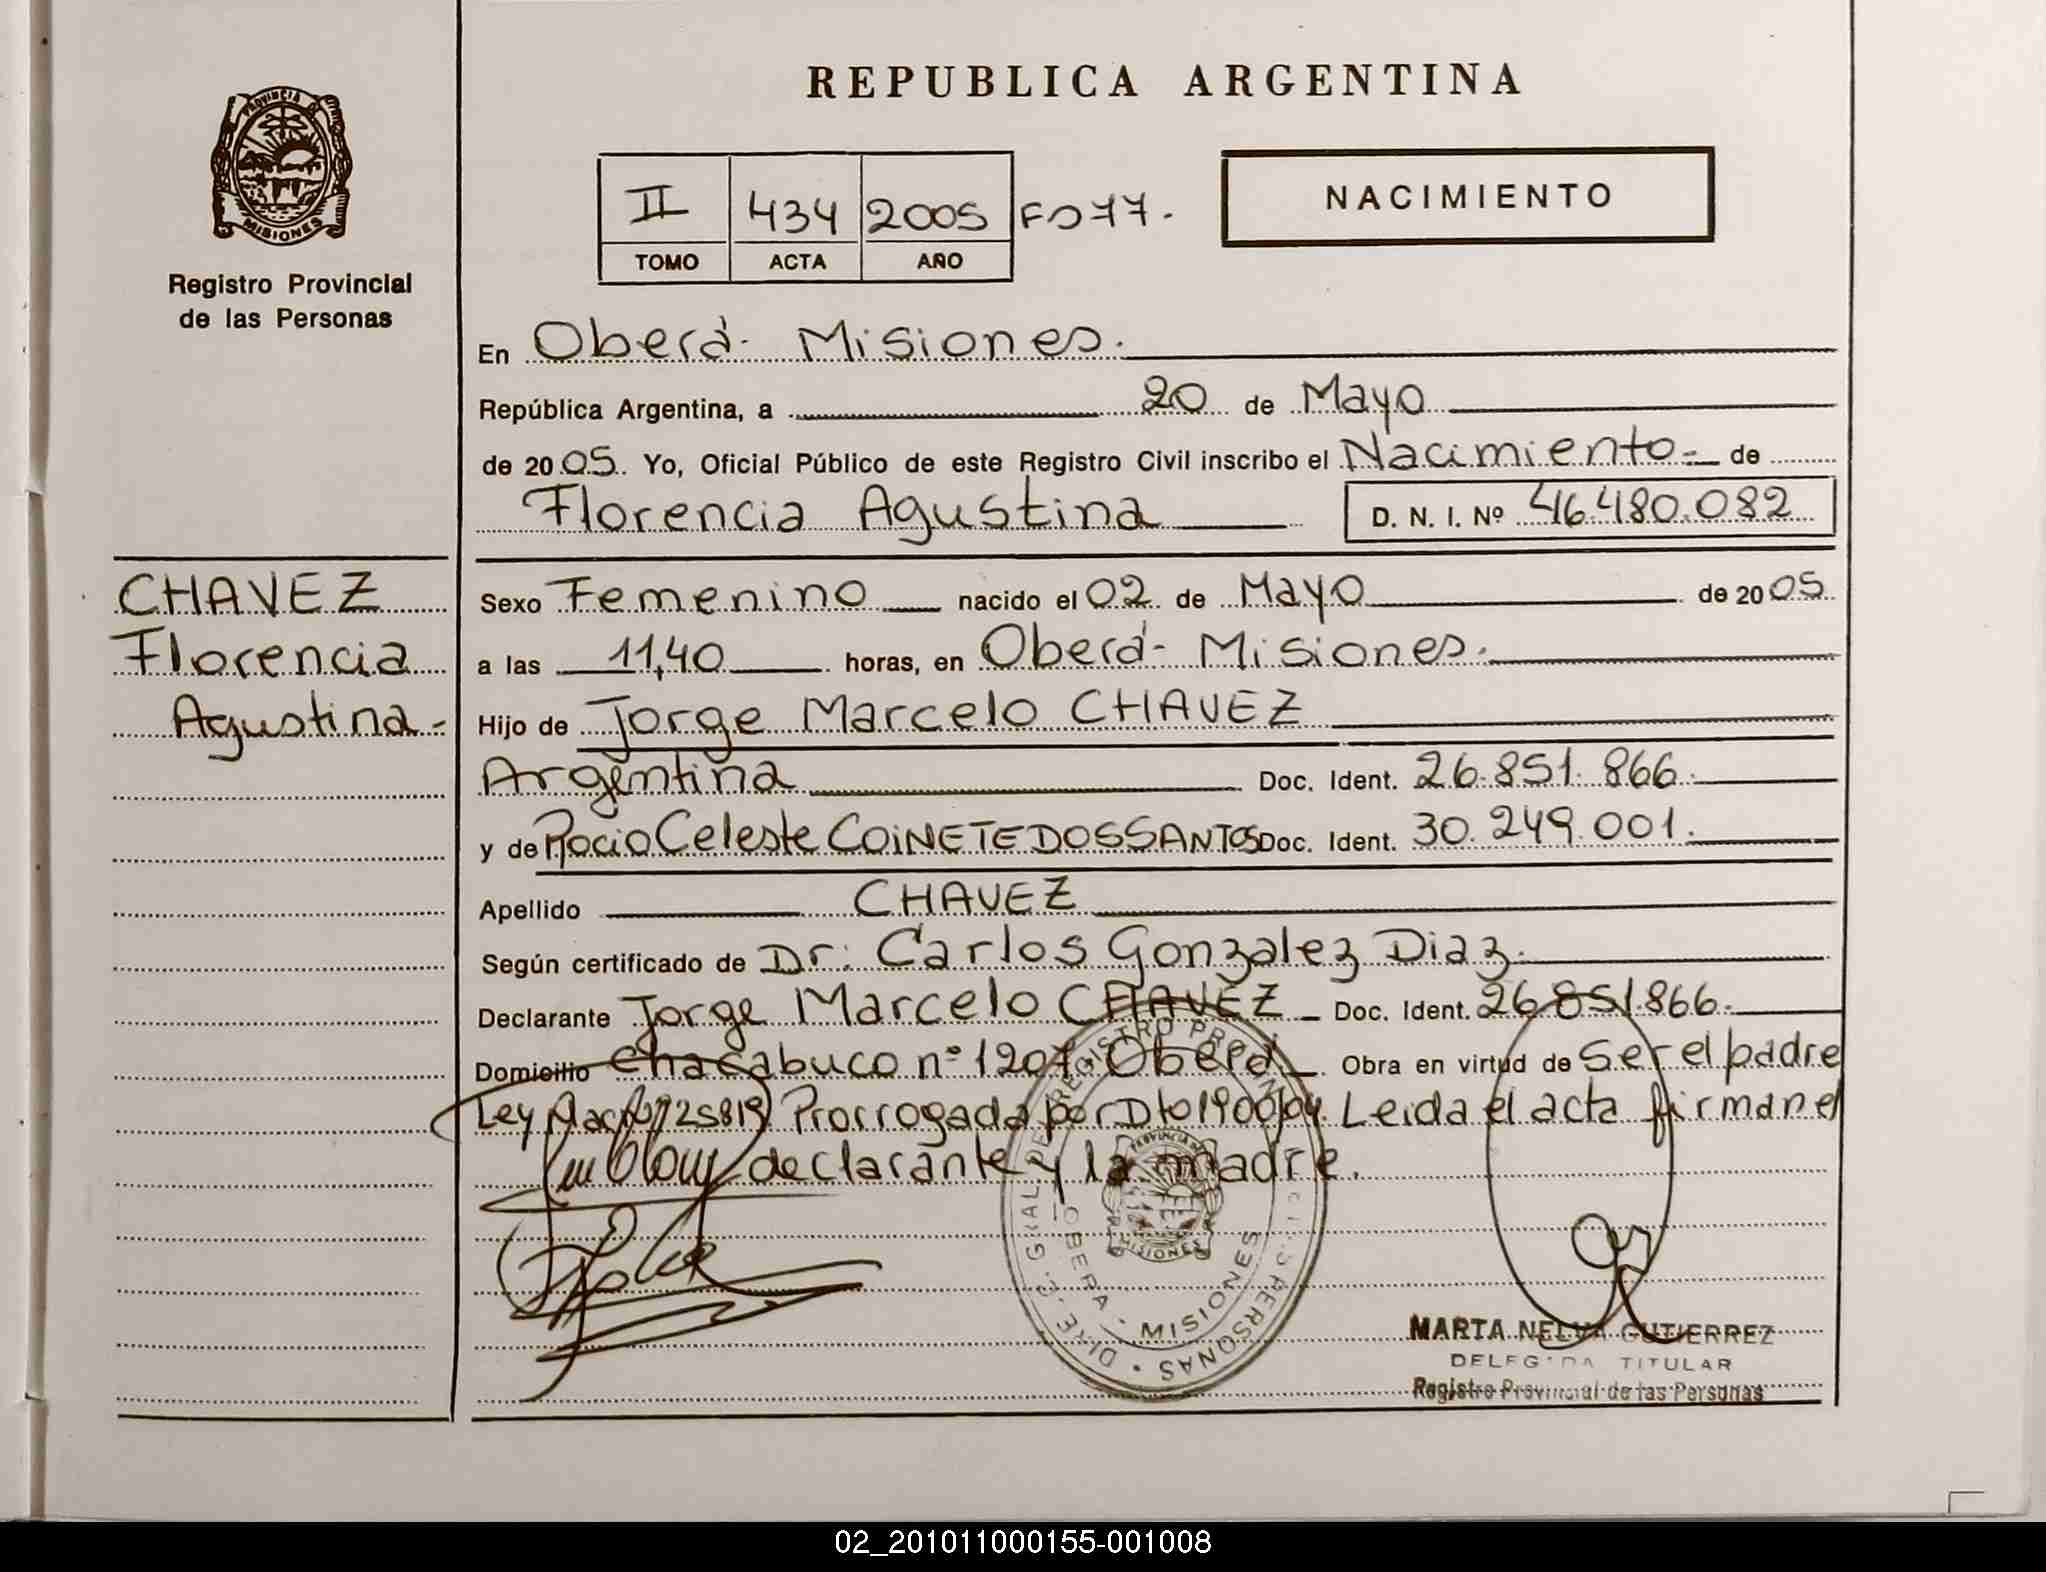 REPUBLICA ARGENTINA
PROVINCIA DE
MISIONES
Registro Provincial
de las Personas
II 434 2005 Fº 77.
TOMO ACTA AÑO
NACIMIENTO
En Oberá- Misiones.
República Argentina, a 20 de Mayo
de 2005. Yo, Oficial Público de este Registro Civil inscribo el Nacimiento- de
Florencia Agustina D. N. I. Nº 46.480.082
CHAVEZ
Florencia
Agustina-
Sexo Femenino nacido el 02 de Mayo de 2005
a las 11,40 horas, en Oberá- Misiones.
Hijo de Jorge Marcelo CHAVEZ
Argentina Doc. Ident. 26.851.866.
y de Rocio Celeste COiNETE DOS SANTOS Doc. Ident. 30.249.001.
Apellido CHAVEZ
Según certificado de Dr: Carlos Gonzalez Diaz.
Declarante Jorge Marcelo CHAVEZ Doc. Ident. 26.851.866.
Domicilio Chacabuco nº 1207. Oberá Obra en virtud de Ser el padre
Ley Nac. Nº 25819 Prorrogada por Dto 1900/04. Leida el acta firman el
declarante y la madre.
REGISTRO PROVINCIAL PERSONAS
PROVINCIA DE
MISIONES
OBERA - MISIONES
MARTA NELVA GUTIERREZ
DELEGADA TITULAR
Registro Provincial de las Personas
02_201011000155-001008